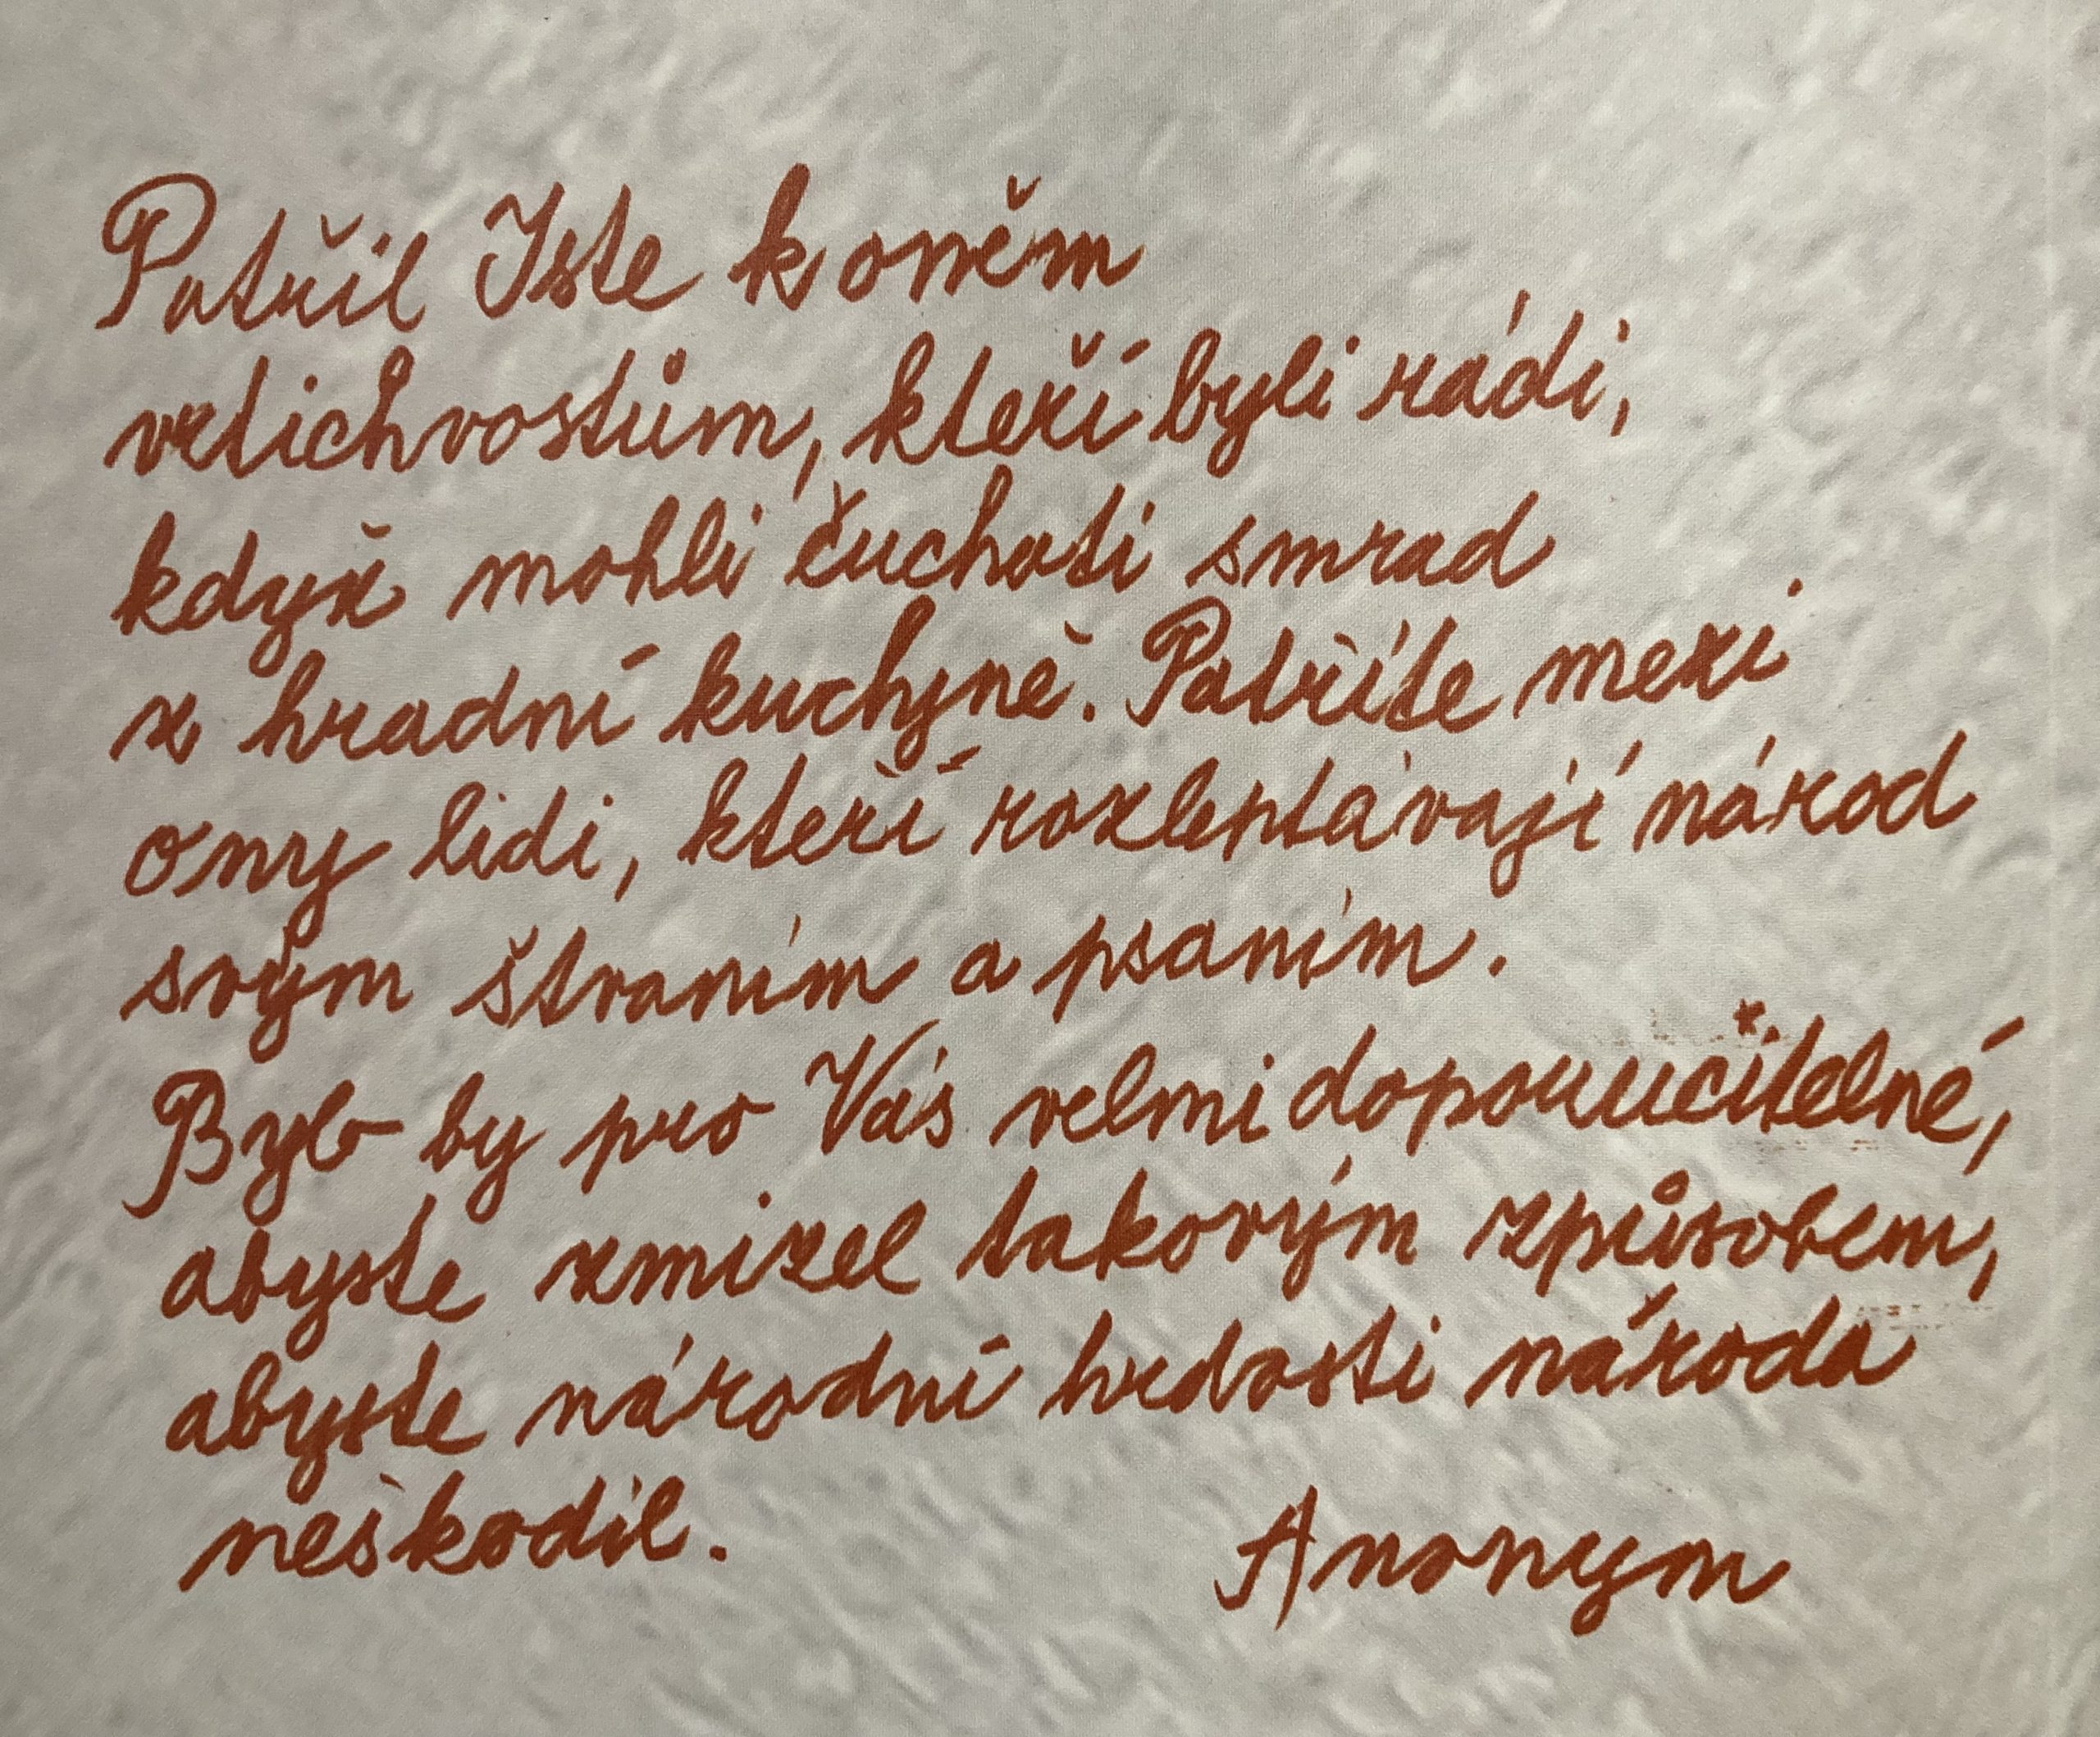 Patřil Jste k oněm
vrtichvostům, kteří byli rádi,
když mohli čuchati smrad
z hradní kuchyně. Patříte mezi
ony lidi, kteří rozleptávají národ
svým štvaním a psaním.
Bylo by pro Vás velmi doporučitelné,
abyste zmizel takovým způsobem,
abyste národní hrdosti národa
neškodil.
Anonym